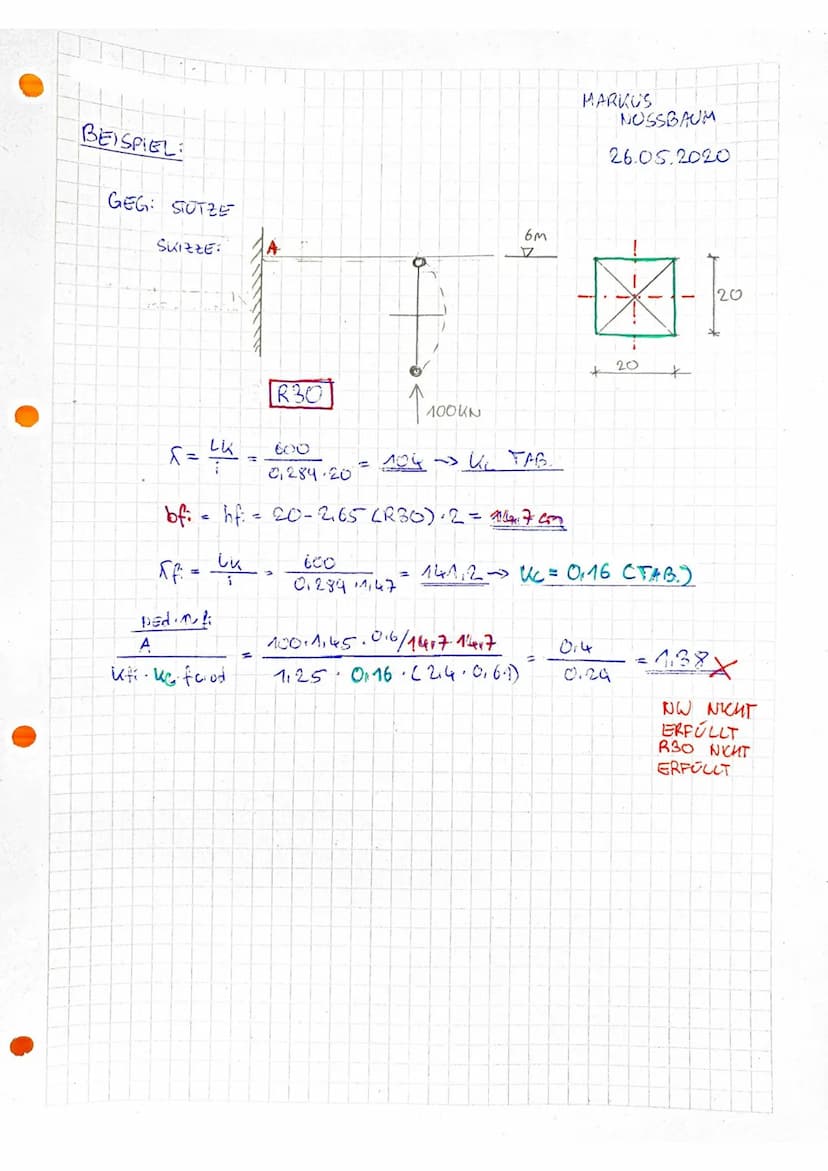 MARKUS
NUSSBAUM
26.05.2020
BEISPIEL:
GEG: STÜTZE
SKIZZE:
A
6m
20
20
R30
100KN
λ = LK / i = 600 / 0,289·20 = 104 → Kc TAB.
bfi = hfi = 20 - 2,65 (R30) · 2 = 14,7 cm
λfi = LK / i = 600 / 0,289·1,47 = 141,2 → Kc = 0,16 (TAB.)
NEd·ηfi / A / Kfi · Kc · fc,od = 100·1,45·0,6/14,7·14,7 / 1,25 · 0,16 · (2,4 · 0,6·1) = 0,4 / 0,29 = 1,38 X
NW NICHT
ERFÜLLT
R30 NICHT
ERFÜLLT